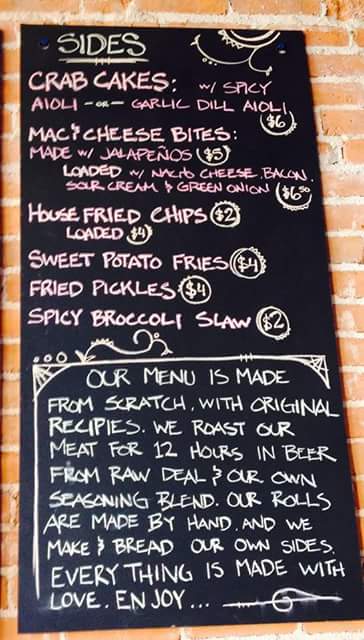 SIDES
CRAB CAKES: W/ SPICY
AIOLI -OR- GARLIC DILL AIOLI
$6
MAC & CHEESE BITES:
MADE W/ JALAPEÑOS $5
LOADED W/ NACHO CHEESE, BACON,
SOUR CREAM & GREEN ONION $6.50
HOUSE FRIED CHIPS $2
LOADED $4
SWEET POTATO FRIES $4
FRIED PICKLES $4
SPICY BROCCOLI SLAW $2
OUR MENU IS MADE
FROM SCRATCH, WITH ORIGINAL
RECIPIES. WE ROAST OUR
MEAT FOR 12 HOURS IN BEER
FROM RAW DEAL & OUR OWN
SEASONING BLEND. OUR ROLLS
ARE MADE BY HAND, AND WE
MAKE & BREAD OUR OWN SIDES.
EVERYTHING IS MADE WITH
LOVE. ENJOY...